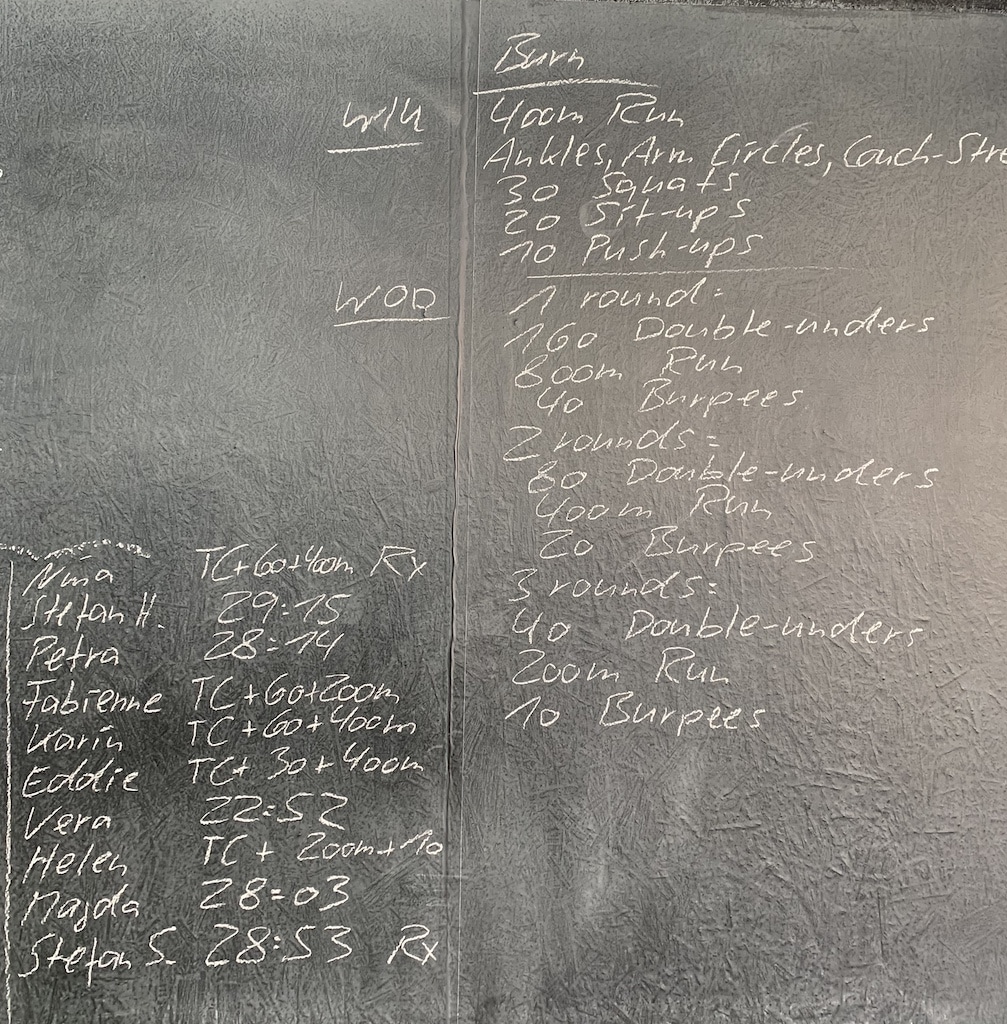 Burn
W/U
400m Run
Ankles, Arm Circles, Couch-Stre
30 Squats
20 Sit-ups
10 Push-ups
WOD
1 round:
160 Double-unders
800m Run
40 Burpees
2 rounds:
80 Double-unders
400m Run
20 Burpees
3 rounds:
40 Double-unders
200m Run
10 Burpees
Nina TC+60+400m Rx
Stefan H. 29:15
Petra 28:14
Fabienne TC+60+200m
Karin TC+60+400m
Eddie TC+30+400m
Vera 22:52
Helen TC+200m+10
Majda 28:03
Stefan S. 28:53 Rx